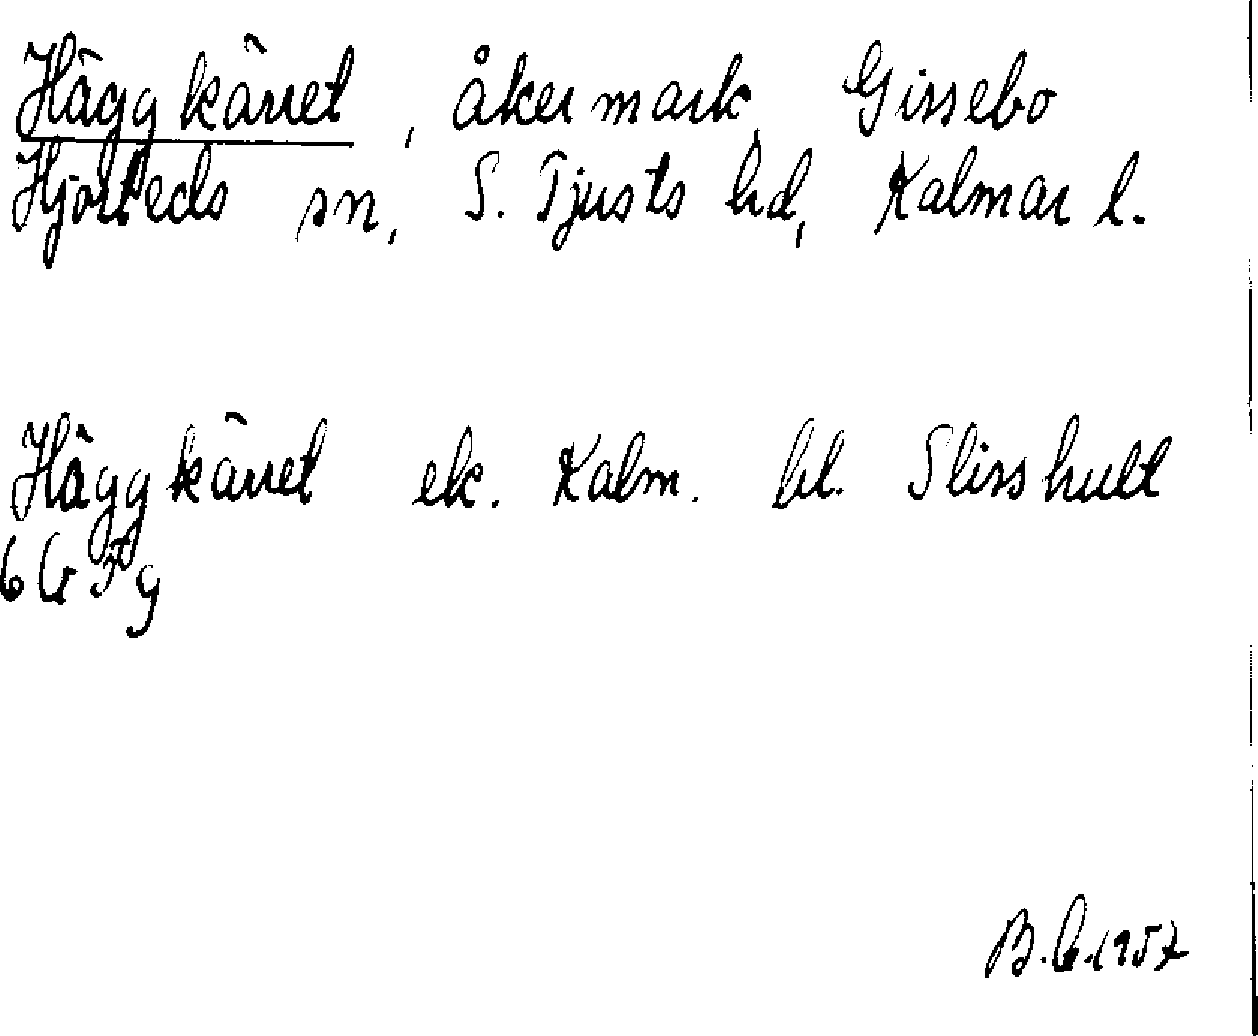 Häggkärret, åkermark, Gissebo
Hjorteds sn, S. Tjusts hd, Kalmar l.
Häggkärret ek. Kalm. bl. Slisshult
6G 3 g
B.G. 1957